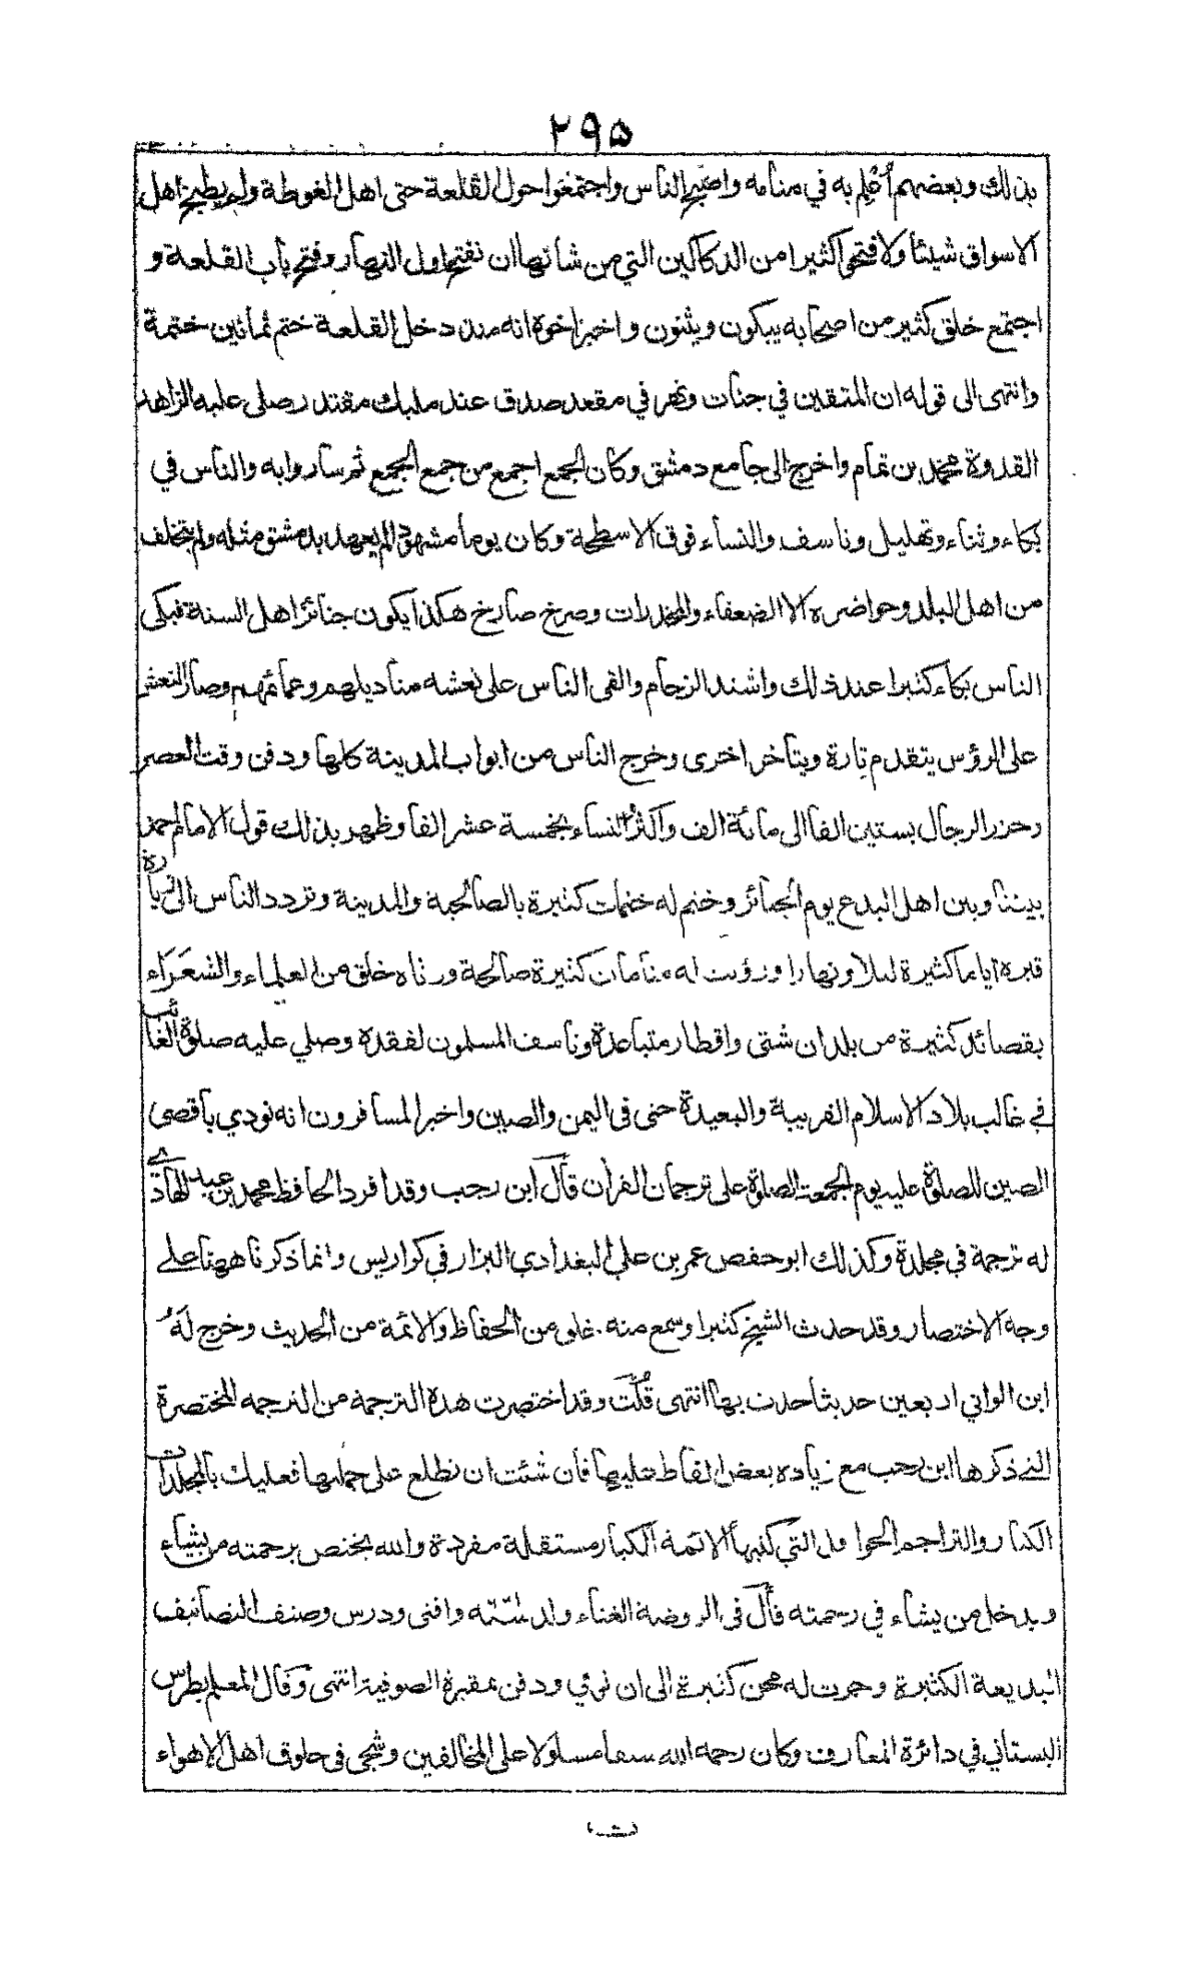 ۲۹۵
بذلك وبعضهم أعلم به في منامه واصبح الناس واجتمعوا حول القلعة حتى اهل الغوطة ولم يطبخ اهل
الاسواق شيئا ولا فتحوا كثيرا من الدكاكين التي من شانها ان تفتح اول النهار وفتح باب القلعة و
اجتمع خلق كثير من اصحابه يبكون ويثنون واخبر اخوه انه منذ دخل القلعة ختم ثمانين ختمة
وانتهى الى قوله ان المتقين في جنات ونهر في مقعد صدق عند مليك مقتدر صلى عليه الزاهد
القدوة محمد بن تمام واخرج الى جامع دمشق وكان الجمع اجمع من جمع الجمع ثم ساروا به والناس في
بكاء وثناء وتهليل وتاسف والنساء فوق الاسطحة وكان يوما مشهودا لم يعهد بدمشق مثله ولم يتخلف
من اهل البلد وحواضره الا الضعفاء والمخدرات وصرخ صارخ هكذا يكون جنائز اهل السنة فبكى
الناس بكاء كثيرا عند ذلك واشتد الزحام والقى الناس على نعشه مناديلهم وعمائمهم وصار النعش
على الرؤس يتقدم تارة ويتاخر اخرى وخرج الناس من ابواب المدينة كلها ودفن وقت العصر
وحزر الرجال بستين الفا الى مائة الف واكثر النساء بخمسة عشر الفا وظهر بذلك قول الامام احمد
بيننا وبين اهل البدع يوم الجنائز وختم له ختمات كثيرة بالصالحية والمدينة وتردد الناس الى زيارة
قبره اياما كثيرة ليلا ونهارا ورؤيت له منامات كثيرة صالحة ورثاه خلق من العلماء والشعراء
بقصائد كثيرة من بلدان شتى واقطار متباعدة وتاسف المسلمون لفقده وصلي عليه صلوة الغائب
في غالب بلاد الاسلام القريبة والبعيدة حتى في اليمن والصين واخبر المسافرون انه نودي باقصى
الصين للصلوة عليه يوم الجمعة الصلوة على ترجمان القرأن قال ابن رجب وقد افرد الحافظ محمد بن عبد الهادي
له ترجمة في مجلدة وكذلك ابو حفص عمر بن علي البغدادي البزار في كراريس وانما ذكرنا ههنا على
وجه الاختصار وقد حدث الشيخ كثيرا وسمع منه خلق من الحفاظ والائمة من الحديث وخرج له
ابن الواني اربعين حديثا حدث بها انتهى قلت وقد اختصرت هذه الترجمة من الترجمه المختصرة
التي ذكرها ابن رجب مع زياده بعض الفاظ عليها فان شئت ان تطلع على جملتها فعليك بالمجلدات
الكبار والتراجم الحوافل التي كتبها الائمة الكبار مستقلة مفردة والله يختص برحمته من يشاء
ويدخل من يشاء في رحمته قال في الروضة الغناء ولد وافتى ودرس وصنف التصانيف
البديعة الكثيرة وجرت له محن كثيرة الى ان توفي ودفن بمقبرة الصوفية انتهى وقال المعلم بطرس
البستاني في دائرة المعارف وكان رحمه الله سيفا مسلولا على المخالفين وشجى في حلوق اهل الاهواء